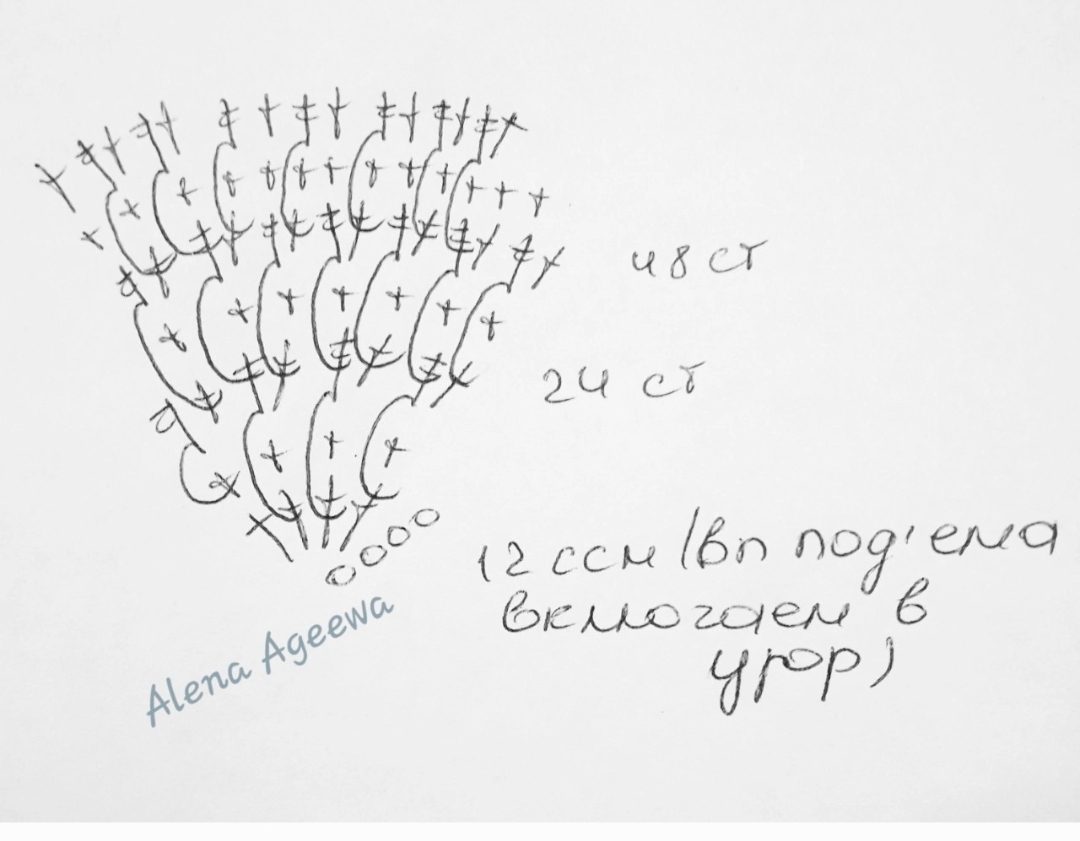 48 ст
24 ст
12 ссн (вп под'ема
включаем в
узор)
Alena Ageewa